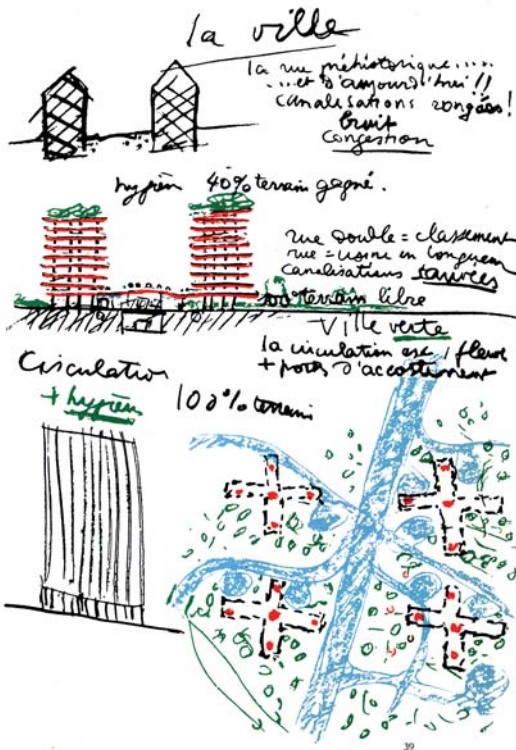 la ville
la rue préhistorique.....
...et d'aujourd'hui!!
canalisations rongées!
bruit
congestion
hygièn 40% terrain gagné.
rue double = classement
rue = usine en longueur
canalisations sauvées
100% terrain libre
Ville verte
la circulation est 1 fleuve
+ ports d'accostement
Circulation
+ hygièn
100% terrain
39